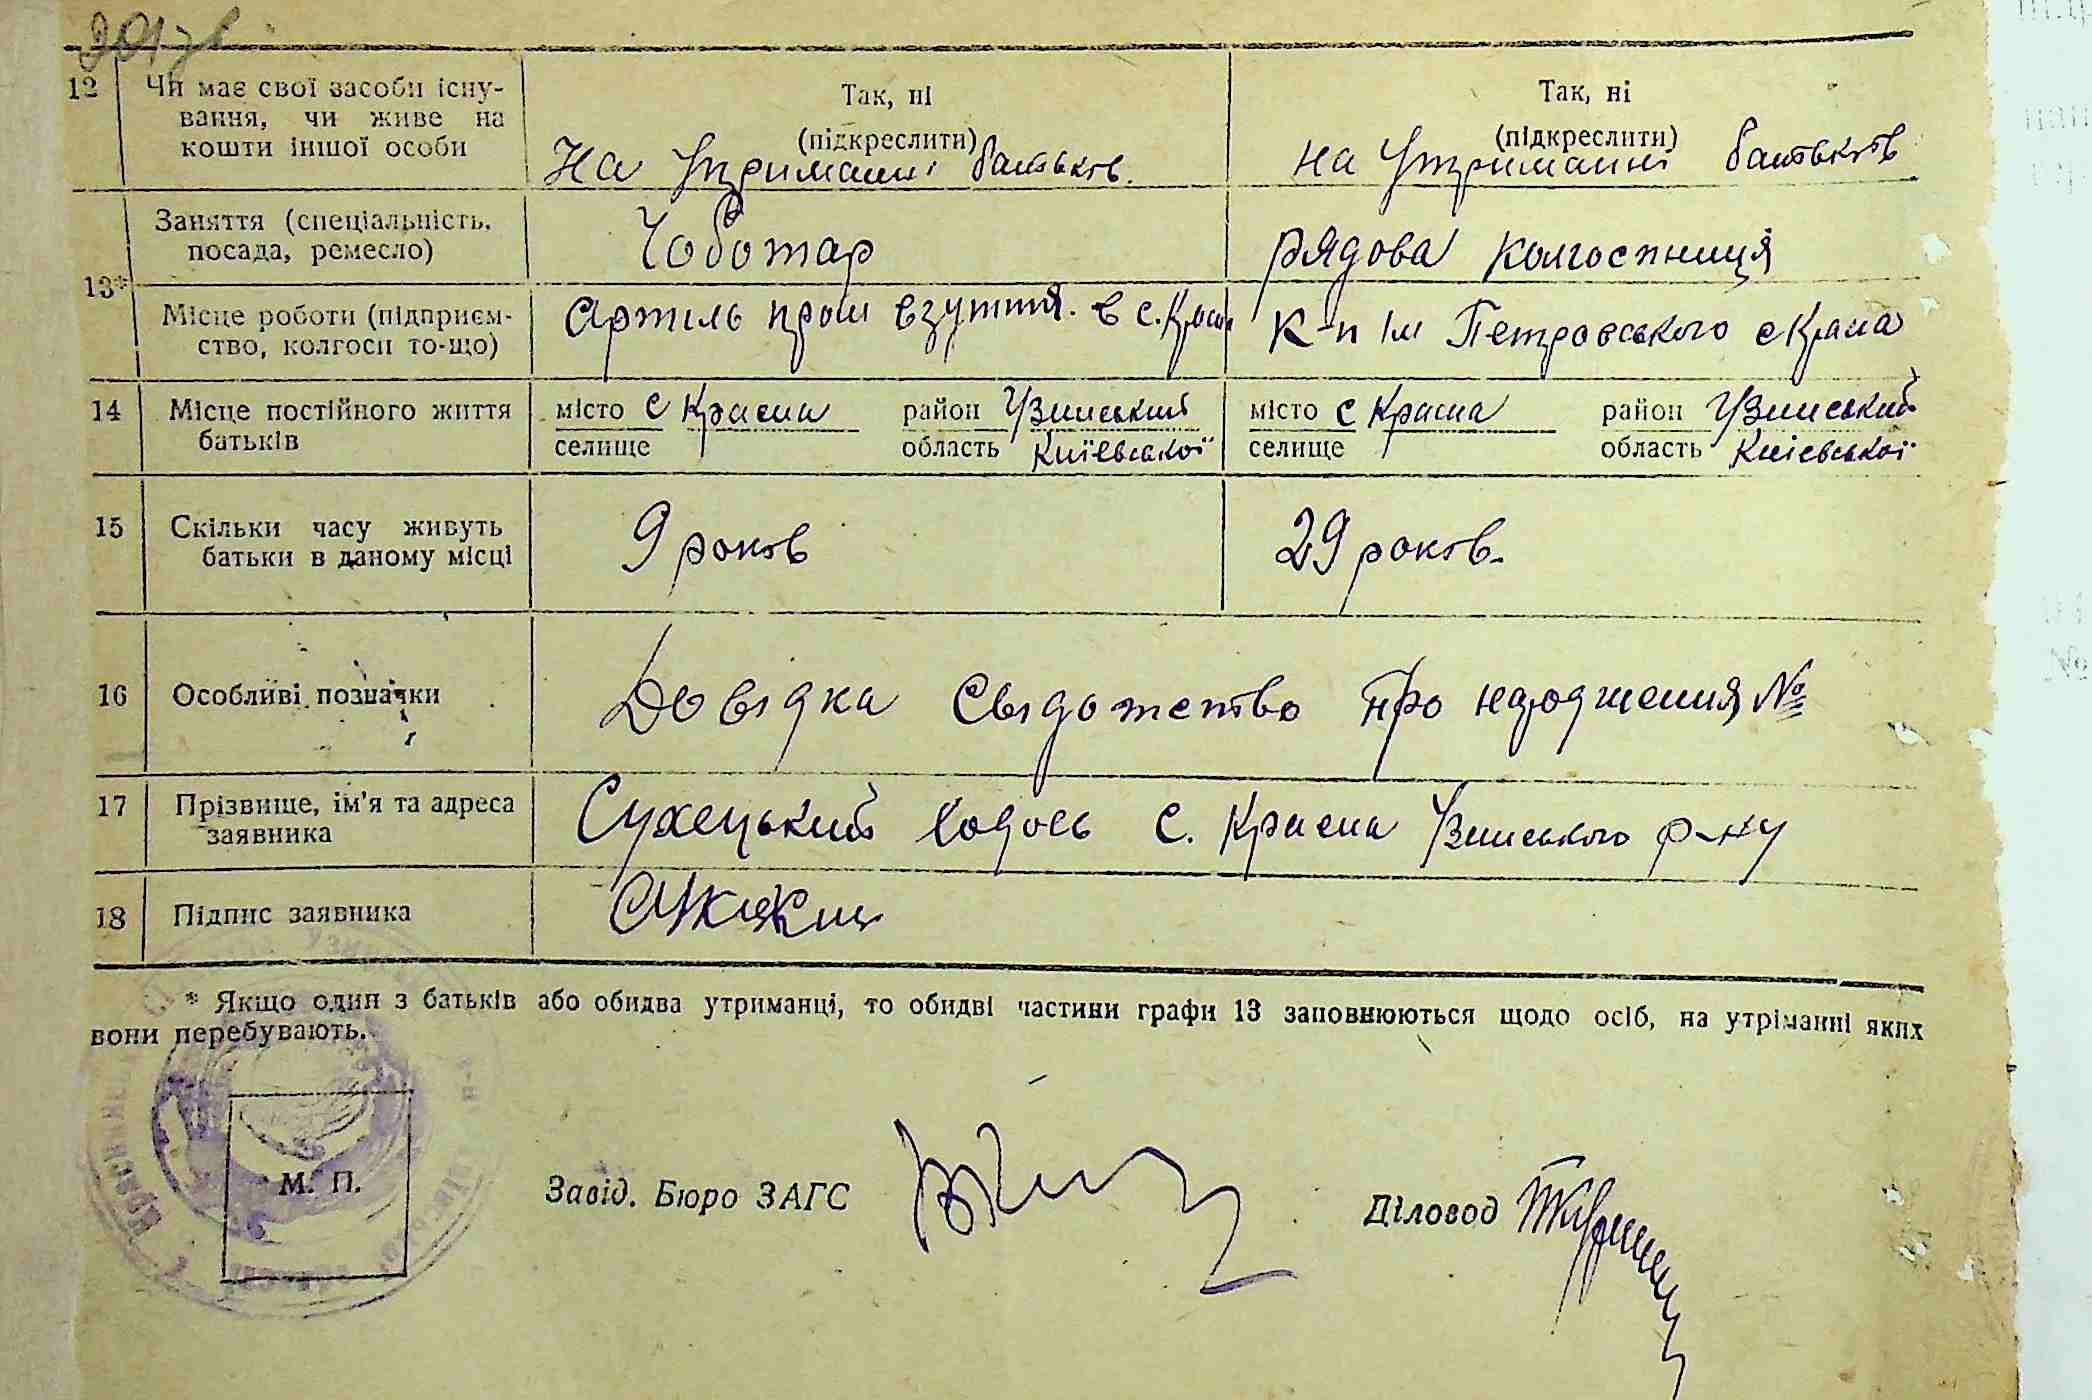 12 Чи має свої засоби існу-
вання, чи живе на
кошти іншої особи
Так, ні
(підкреслити)
На Утриманні батьков.
Так, ні
(підкреслити)
на Утриманні батьков
13*
Заняття (спеціальність,
посада, ремесло)
Чоботар
рядова колгоспниця
Місце роботи (підприєм-
ство, колгосп то-що)
Артиль пром взуття. в с. Красн
К-п ім Петровського с Красна
14 Місце постійного життя
батьків
місто с Красна район Узинський
селище область Київської
місто с Красна район Узинський
селище область Київської
15 Скільки часу живуть
батьки в даному місці
9 років
29 років.
16 Особливі позначки
Довідка Свідотство про народження №
17 Прізвище, ім'я та адреса
заявника
Сухецький с. Красна Узинського р-ну
18 Підпис заявника
* Якщо один з батьків або обидва утриманці, то обидві частини графи 13 заповнюються щодо осіб, на утріманні яких
вони перебувають.
М. П.
Завід. Бюро ЗАГС
Діловод